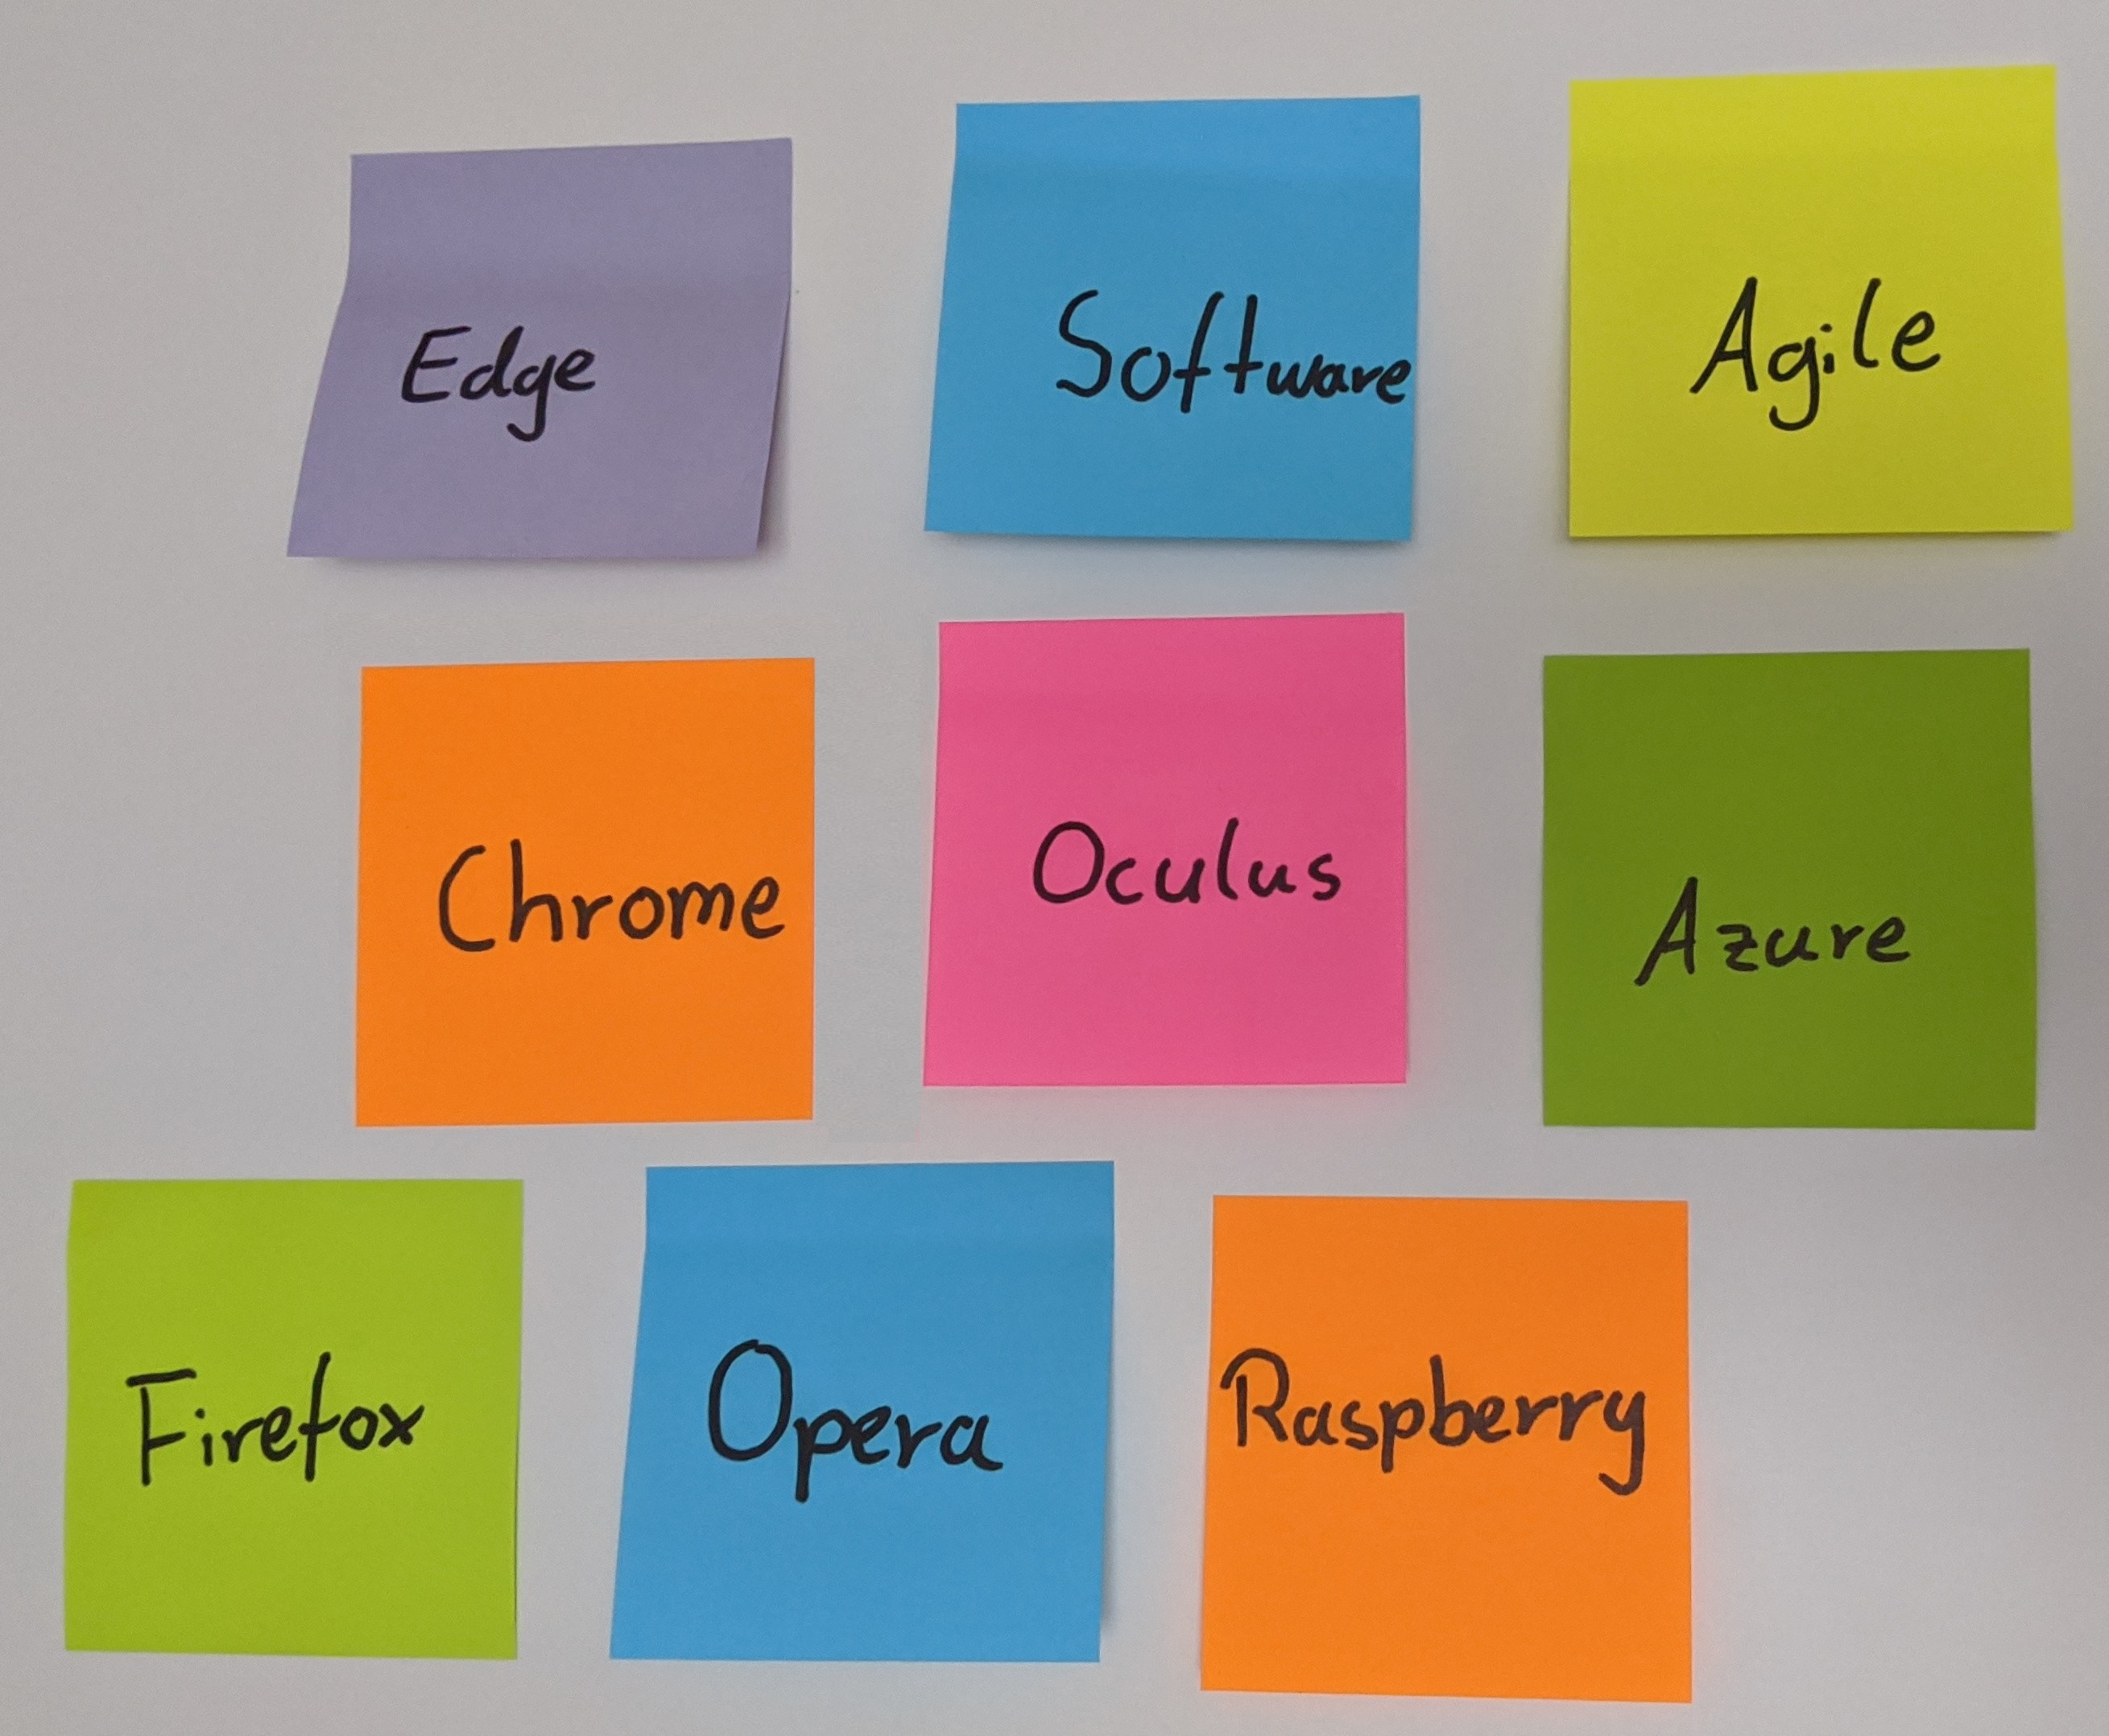 Edge
Software
Agile
Chrome
Oculus
Azure
Firefox
Opera
Raspberry